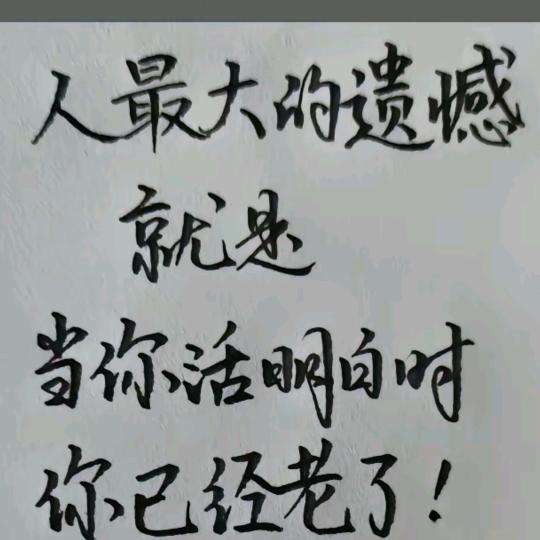 人最大的遗憾
就是
当你活明白时
你已经老了!